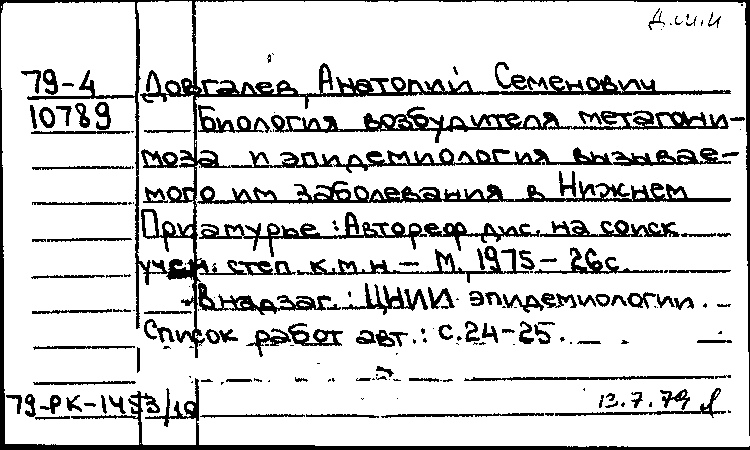 Д.ш.и
79-4 Довгалев, Анатолий Семенович
10789 Биология возбудителя метагони-
моза и эпидемиология вызывае-
мого им заболевания в Нижнем
Приамурье : Автореф дис. на соиск
учен. степ. к.м.н. — М., 1975 — 26с.
В надзаг.: ЦНИИ эпидемиологии. —
Список работ авт.: с.24-25.
79-РК-1453/10 13.7.79